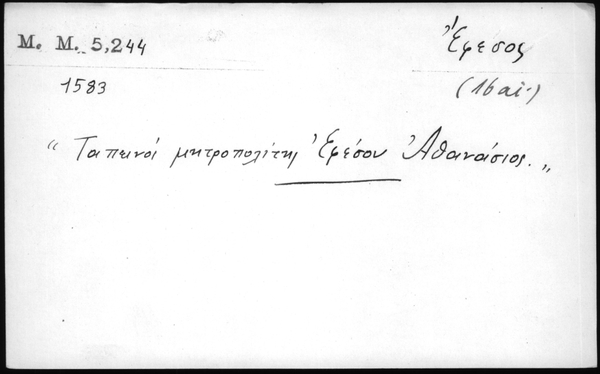 M. M. 5,244
Ἔφεσος
1583
(16 αἰ.)
“Ταπεινοί μητροπολίτης Ἐφέσου Ἀθανάσιος.„